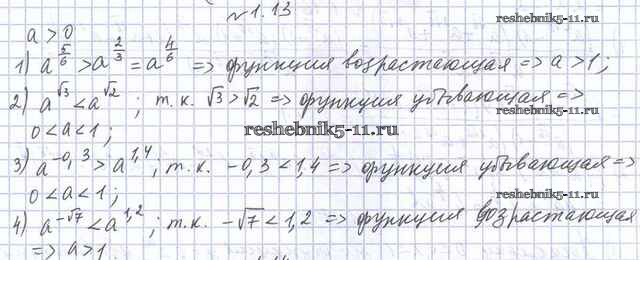 №1.13
reshebnik5-11.ru
a > 0
1) a^(5/6) > a^(2/3) = a^(4/6) => функция возрастающая => a > 1;
2) a^√3 < a^√2; т.к. √3 > √2 => функция убывающая =>
0 < a < 1;
reshebnik5-11.ru
3) a^(-0,3) > a^(1,4); т.к. -0,3 < 1,4 => функция убывающая =>
0 < a < 1;
reshebnik5-11.ru
4) a^(-√7) < a^(1,2); т.к. -√7 < 1,2 => функция возрастающая
=> a > 1